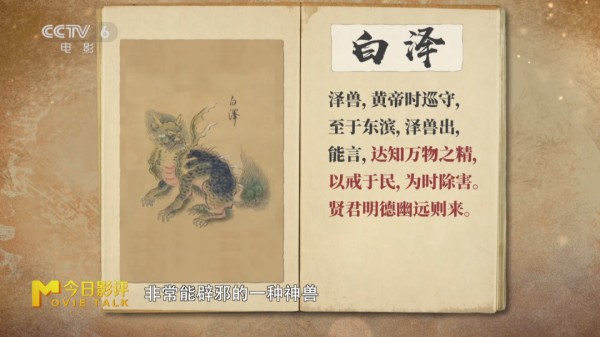 CCTV 6
电影
白泽
白澤
泽兽，黄帝时巡守，
至于东滨，泽兽出，
能言，达知万物之精，
以戒于民，为时除害。
贤君明德幽远则来。
今日影评
MOVIE TALK
非常能辟邪的一种神兽